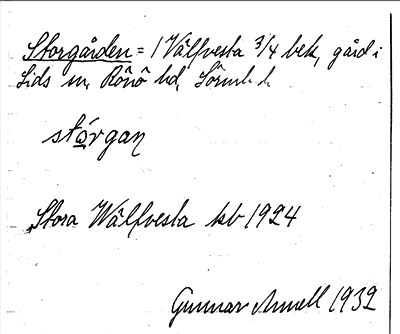 Storgården = 1 Välfvesta 3/4 bek, gård i
Lids sn, Rönö hd, Sörml. l.
stórgan
Stora Wälfvesta kb 1924
Gunnar Amell 1932